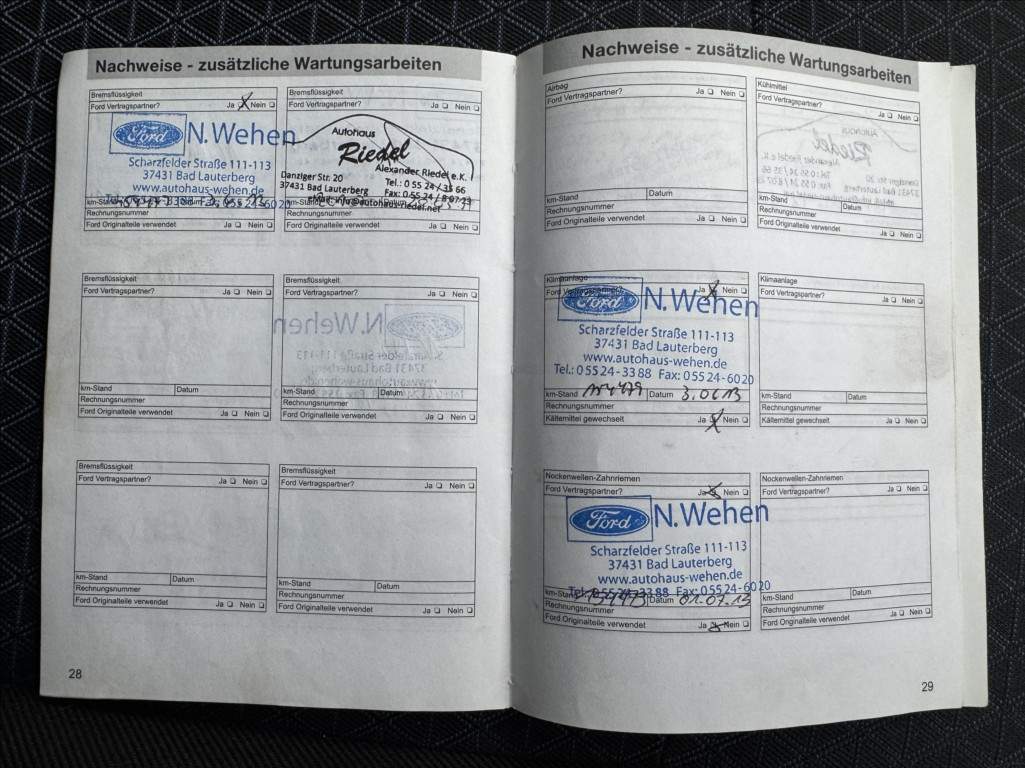 Nachweise - zusätzliche Wartungsarbeiten
Bremsflüssigkeit
Ford Vertragspartner? Ja Nein
Ford N.Wehen
Scharzfelder Straße 111-113
37431 Bad Lauterberg
www.autohaus-wehen.de
km-Stand Datum
Rechnungsnummer
Ford Originalteile verwendet Ja Nein
Bremsflüssigkeit
Ford Vertragspartner? Ja Nein
Autohaus
Riedel
Alexander Riedel e.K.
Danziger Str. 20
37431 Bad Lauterberg
Tel.: 0 55 24 / 35 66
Fax: 0 55 24 / 8 07 23
eMail: info@autohaus-riedel.net
km-Stand Datum
Rechnungsnummer
Ford Originalteile verwendet Ja Nein
Bremsflüssigkeit
Ford Vertragspartner? Ja Nein
km-Stand Datum
Rechnungsnummer
Ford Originalteile verwendet Ja Nein
Bremsflüssigkeit
Ford Vertragspartner? Ja Nein
km-Stand Datum
Rechnungsnummer
Ford Originalteile verwendet Ja Nein
Bremsflüssigkeit
Ford Vertragspartner? Ja Nein
km-Stand Datum
Rechnungsnummer
Ford Originalteile verwendet Ja Nein
Bremsflüssigkeit
Ford Vertragspartner? Ja Nein
km-Stand Datum
Rechnungsnummer
Ford Originalteile verwendet Ja Nein
28
Nachweise - zusätzliche Wartungsarbeiten
Airbag
Ford Vertragspartner? Ja Nein
km-Stand Datum
Rechnungsnummer
Ford Originalteile verwendet Ja Nein
Kühlmittel
Ford Vertragspartner? Ja Nein
km-Stand Datum
Rechnungsnummer
Ford Originalteile verwendet Ja Nein
Klimaanlage
Ford Vertragspartner? Ja Nein
Ford N.Wehen
Scharzfelder Straße 111-113
37431 Bad Lauterberg
www.autohaus-wehen.de
Tel.: 0 55 24 - 33 88 Fax: 0 55 24 - 60 20
km-Stand Datum
Rechnungsnummer
Kältemittel gewechselt Ja Nein
Klimaanlage
Ford Vertragspartner? Ja Nein
km-Stand Datum
Rechnungsnummer
Kältemittel gewechselt Ja Nein
Nockenwellen-Zahnriemen
Ford Vertragspartner? Ja Nein
Ford N.Wehen
Scharzfelder Straße 111-113
37431 Bad Lauterberg
www.autohaus-wehen.de
Tel.: 0 55 24 - 33 88 Fax: 0 55 24 - 60 20
km-Stand Datum 01.07.13
Rechnungsnummer
Ford Originalteile verwendet Ja Nein
Nockenwellen-Zahnriemen
Ford Vertragspartner? Ja Nein
km-Stand Datum
Rechnungsnummer
Ford Originalteile verwendet Ja Nein
29